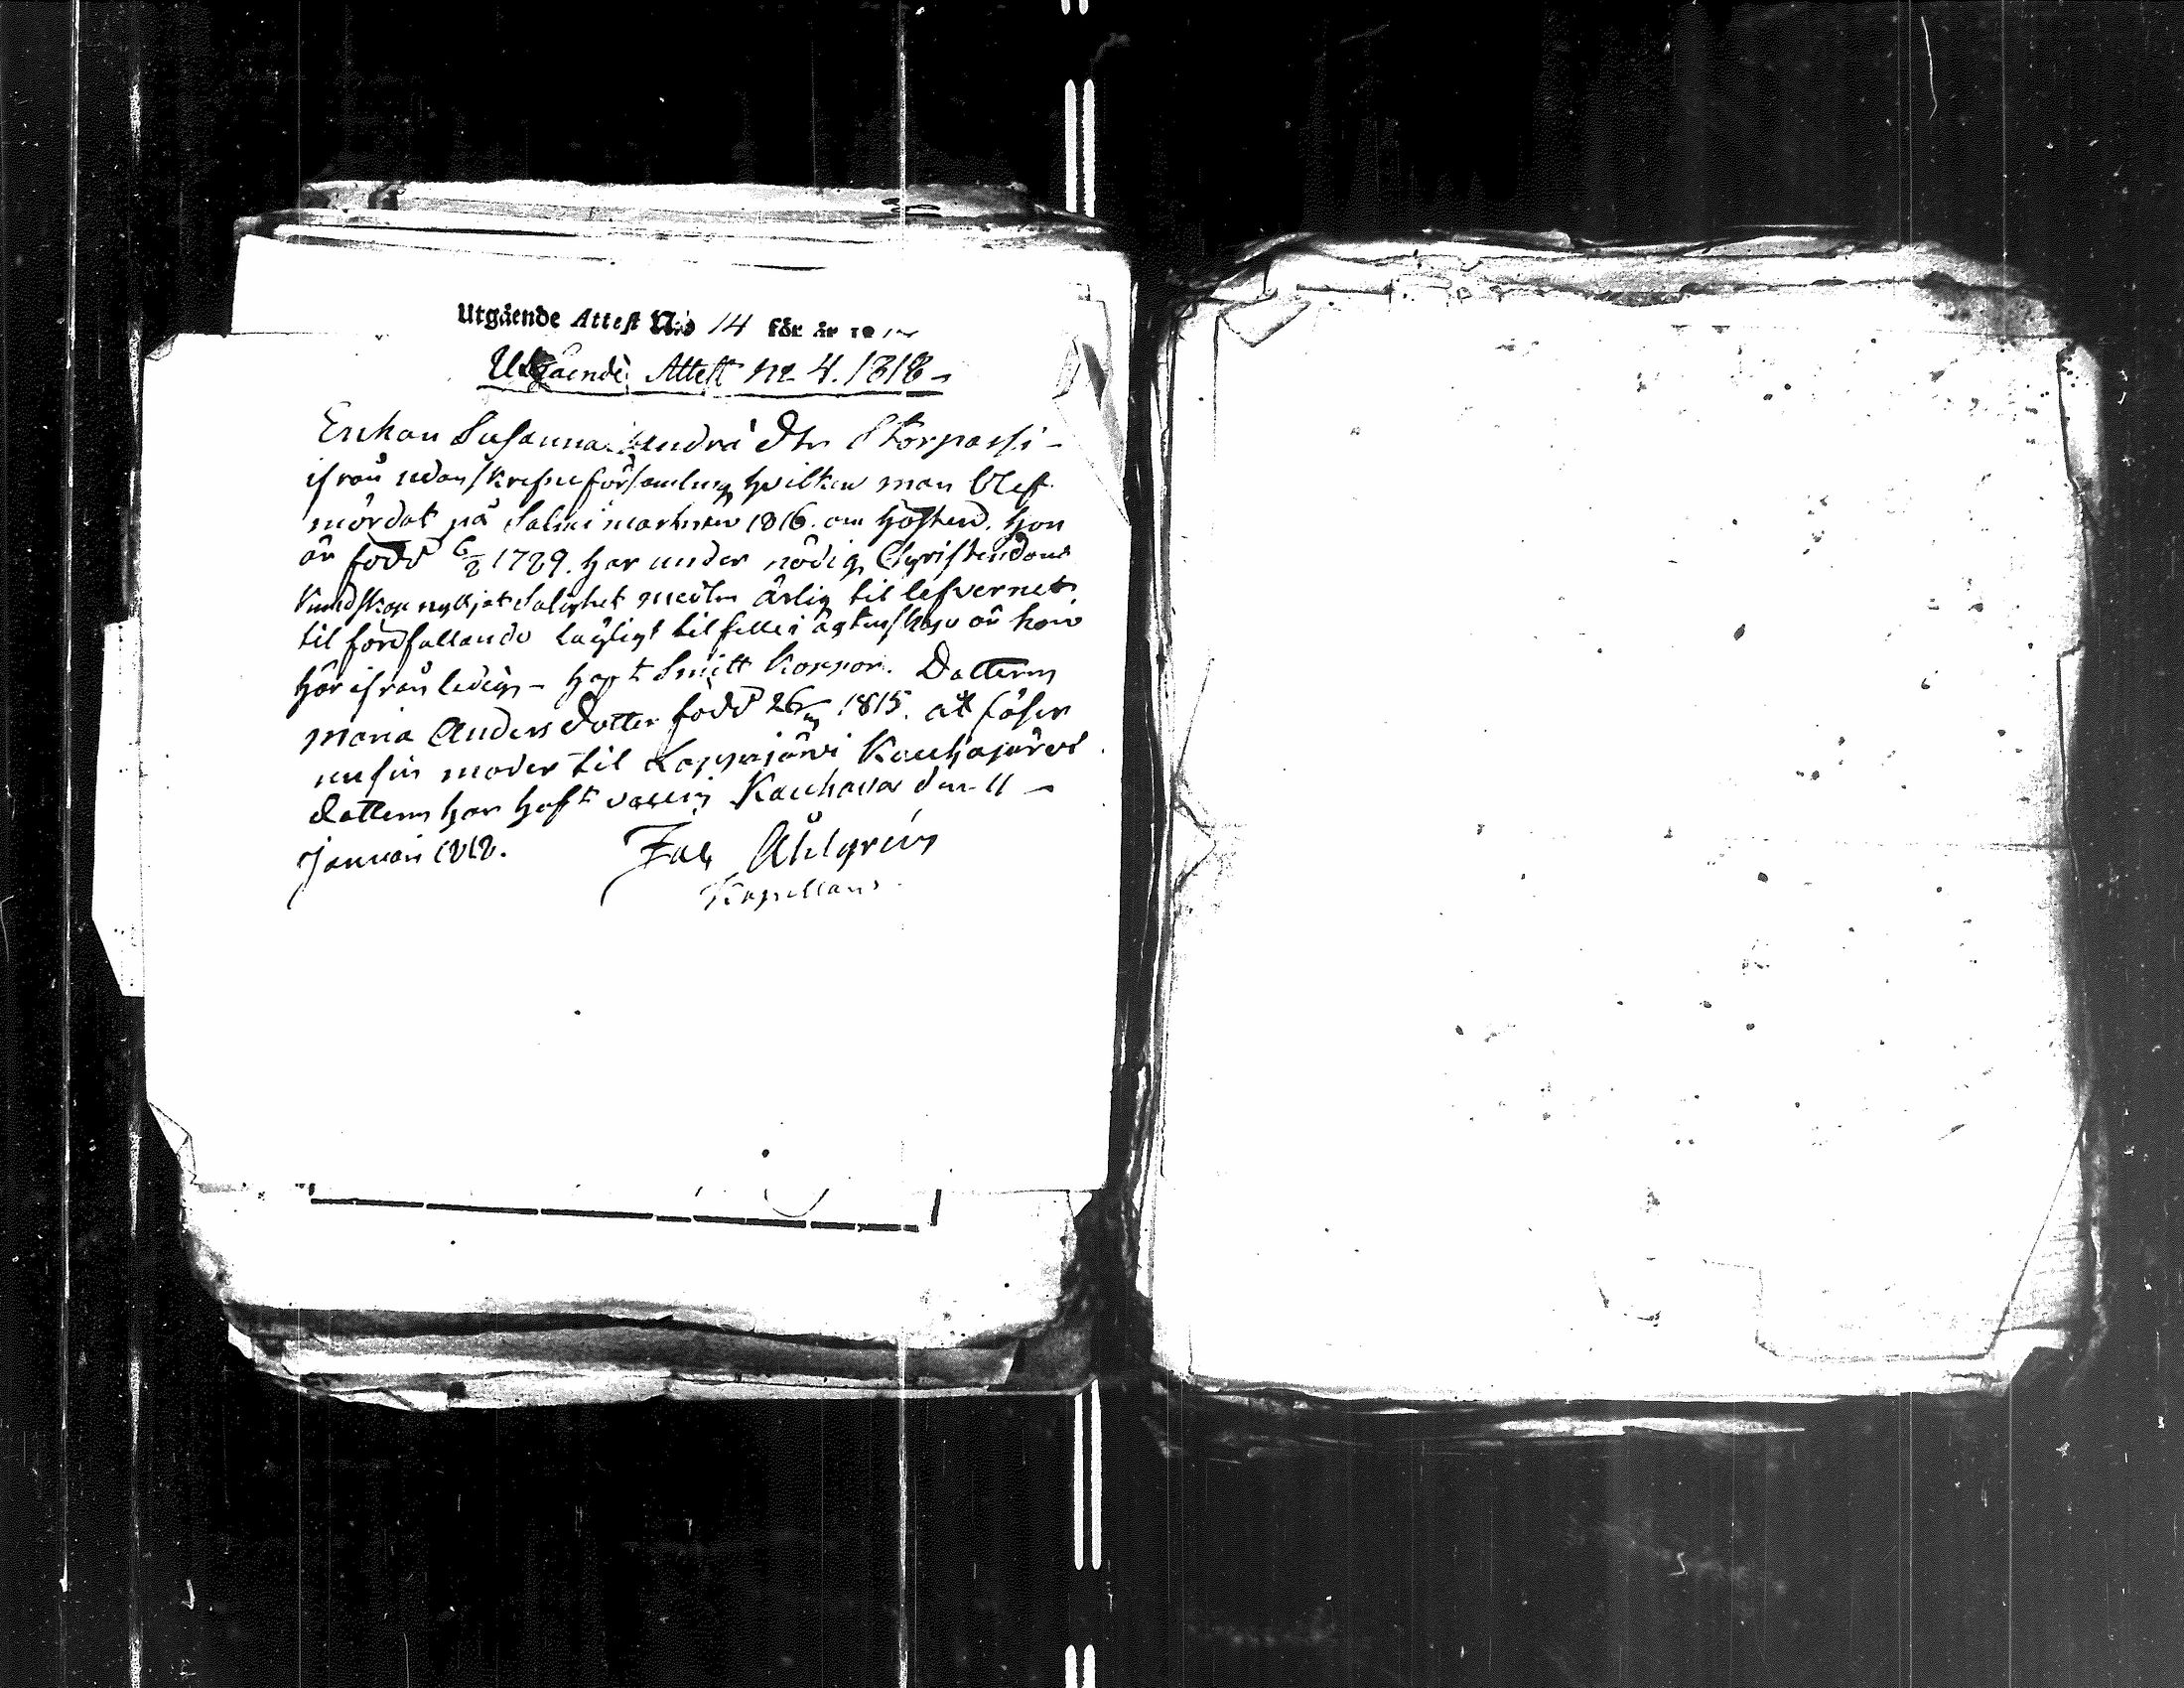 Utgående Attest N:o 14 för år 18
Utgående Attest nr 4. 1818 -
Enkan Susanna Andrä Dtr Storpassi -
ifrån nedanskrefne församling hvilken man blef
mördat på Salmi marknaden 1816. om hösten. hon
är född 6/2 1789. har under nödig Christendoms
kundskap nyttjat Salighet medlen ärlig til lefvernet
til förefallande lagligt tilfelle i ägtenskap är hon
härifrån ledig - haft Smitt koppor. Dottern
Maria Anders dotter född 26 1815. åt följer
nu sin moder til Lappajärvi
dottern har haft Kauhava den 11 -
Januari 1818.
Jac Ahlgren
Kapellan